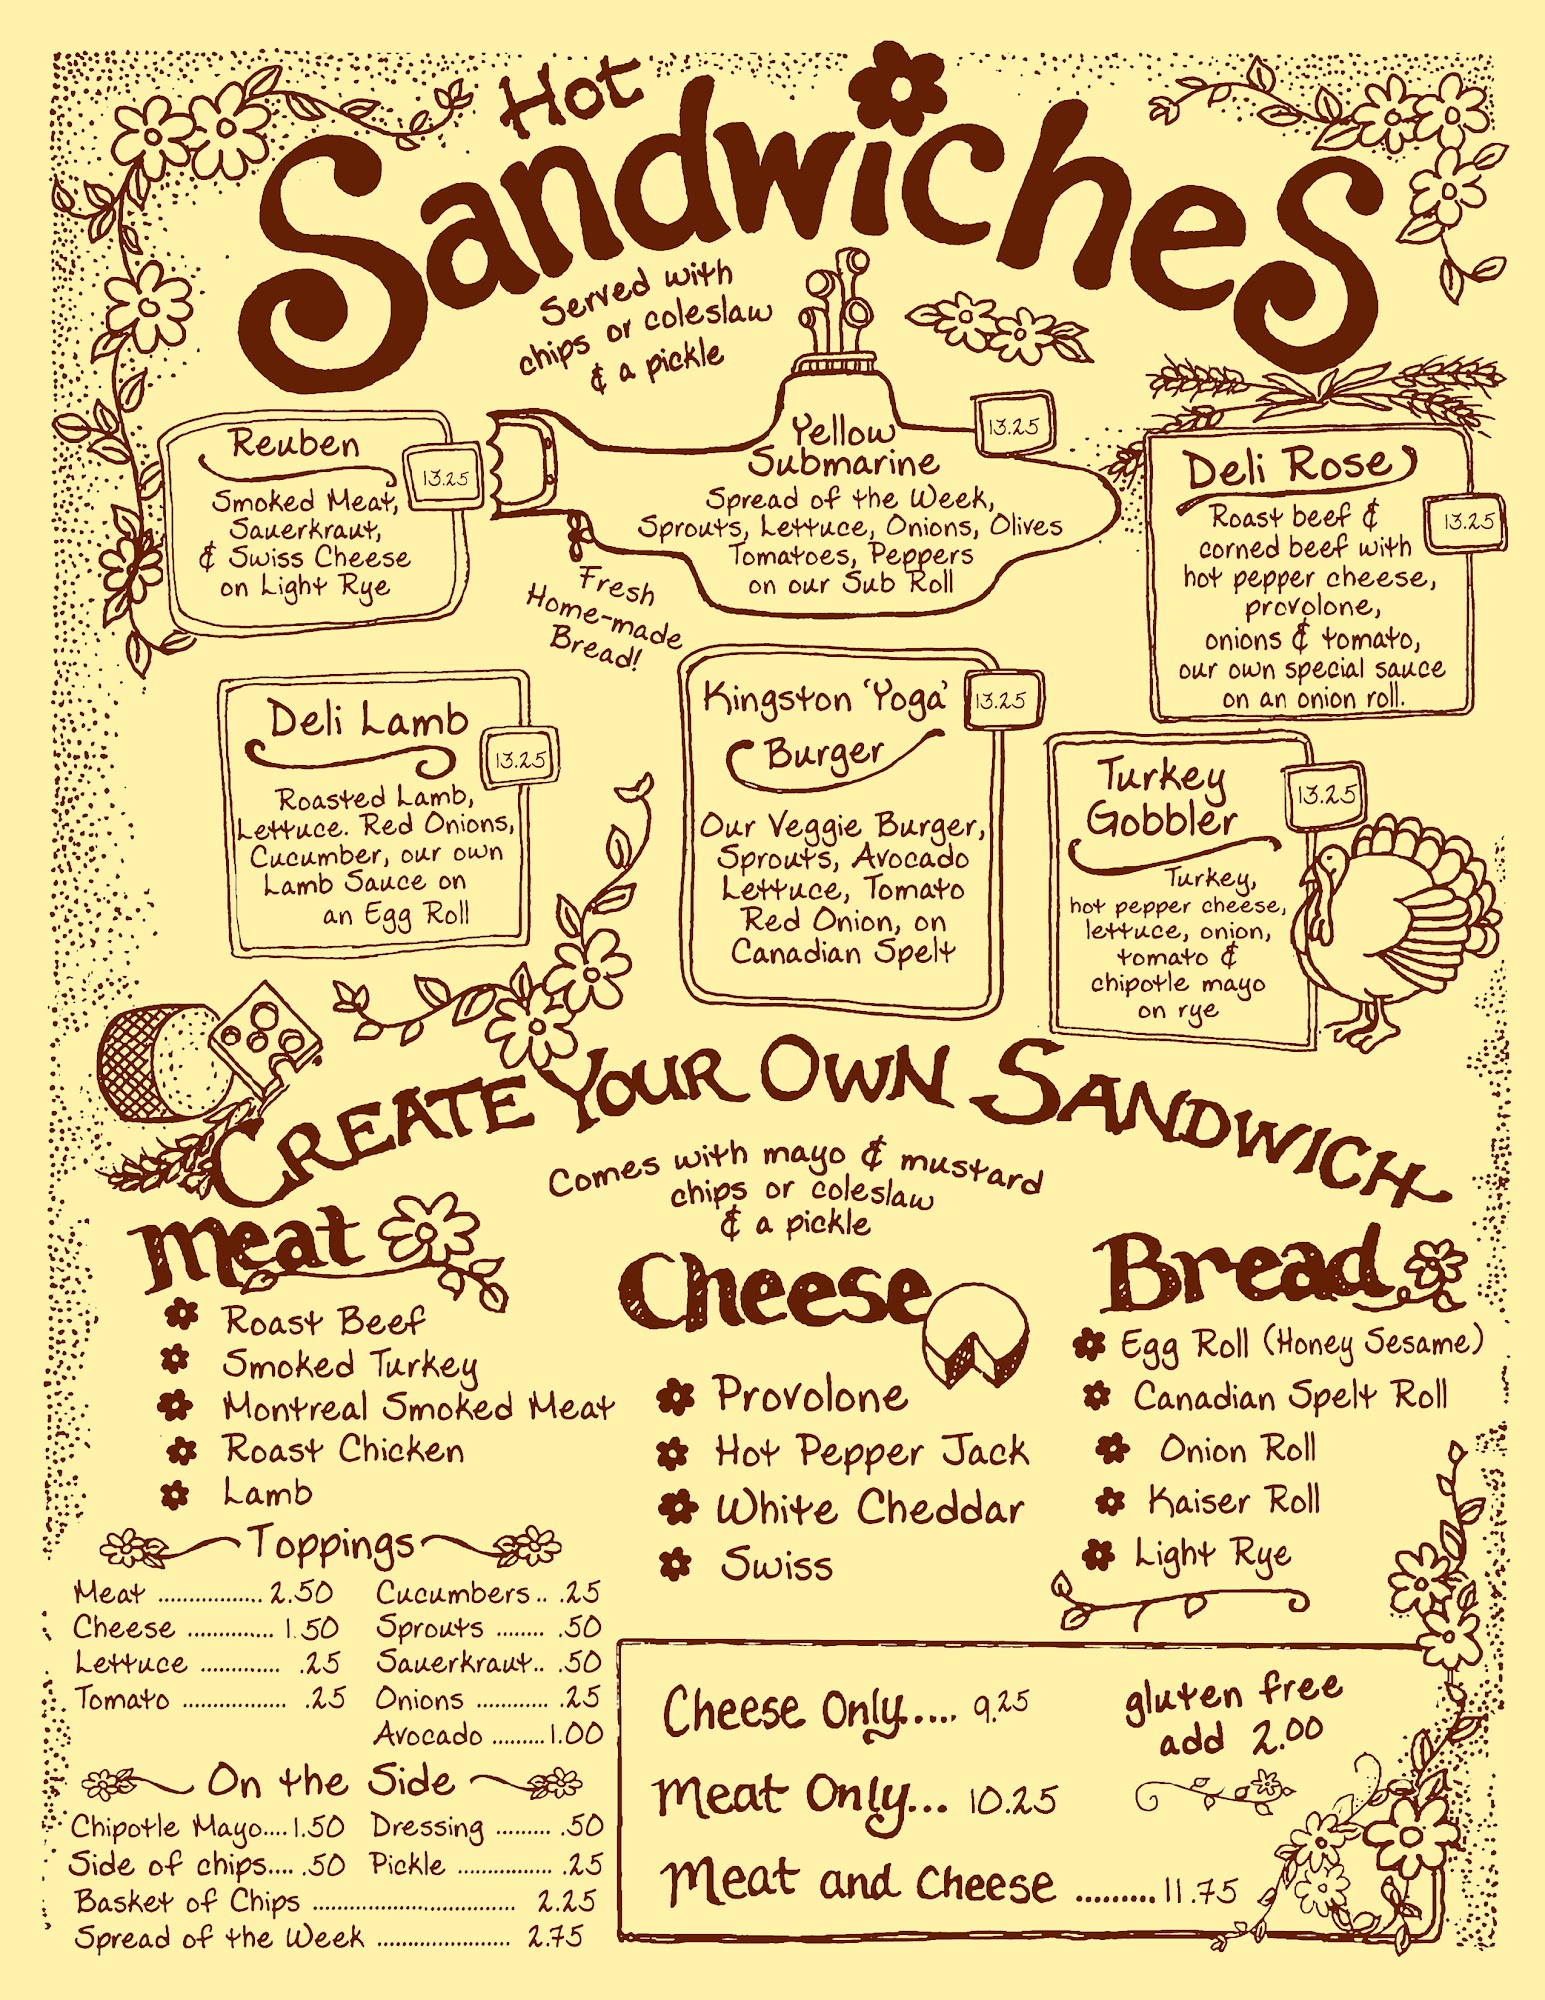 Hot
Sandwiches
Served with
chips or coleslaw
& a pickle
Reuben
13.25
Smoked Meat,
Sauerkraut,
& Swiss Cheese
on Light Rye
Yellow
Submarine
13.25
Spread of the Week,
Sprouts, Lettuce, Onions, Olives
Tomatoes, Peppers
on our Sub Roll
Deli Rose
13.25
Roast beef &
corned beef with
hot pepper cheese,
provolone,
onions & tomato,
our own special sauce
on an onion roll.
Fresh
Home-made
Bread!
Deli Lamb
13.25
Roasted Lamb,
Lettuce. Red Onions,
Cucumber, our own
Lamb Sauce on
an Egg Roll
Kingston 'Yoga'
Burger
13.25
Our Veggie Burger,
Sprouts, Avocado
Lettuce, Tomato
Red Onion, on
Canadian Spelt
Turkey
Gobbler
13.25
Turkey,
hot pepper cheese,
lettuce, onion,
tomato &
chipotle mayo
on rye
CREATE YOUR OWN SANDWICH
Comes with mayo & mustard
chips or coleslaw
& a pickle
Meat
Roast Beef
Smoked Turkey
Montreal Smoked Meat
Roast Chicken
Lamb
Cheese
Provolone
Hot Pepper Jack
White Cheddar
Swiss
Bread
Egg Roll (Honey Sesame)
Canadian Spelt Roll
Onion Roll
Kaiser Roll
Light Rye
Toppings
Meat .................. 2.50
Cheese ............... 1.50
Lettuce .............. .25
Tomato .................. .25
Cucumbers .. .25
Sprouts ........ .50
Sauerkraut.. .50
Onions ............ .25
Avocado .........1.00
On the Side
Chipotle Mayo....1.50
Side of chips.... .50
Dressing ......... .50
Pickle ................ .25
Basket of Chips ................................... 2.25
Spread of the Week ....................... 2.75
Cheese Only..... 9.25
Meat Only... 10.25
Meat and Cheese .........11.75
gluten free
add 2.00